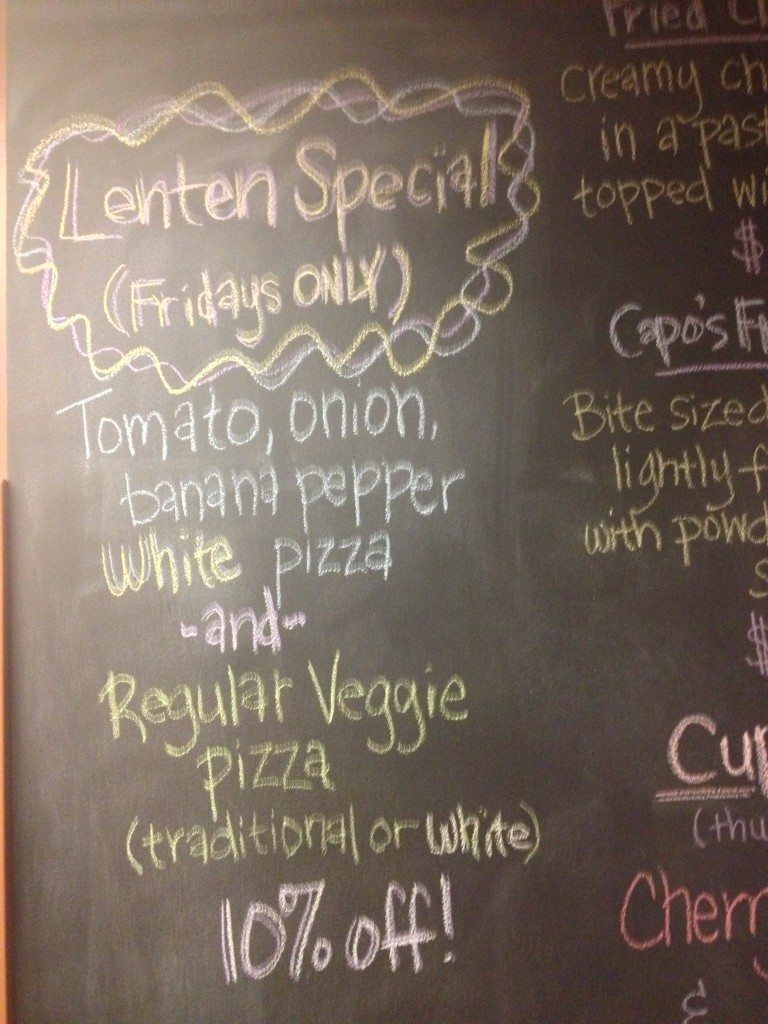 Lenten Special
(Fridays ONLY)
Tomato, onion,
banana pepper
White pizza
-and-
Regular Veggie
pizza
(traditional or white)
10% off!
Fried
Creamy
in a
topped
$
Capo's
Bite sized
lightly-
with
$
&